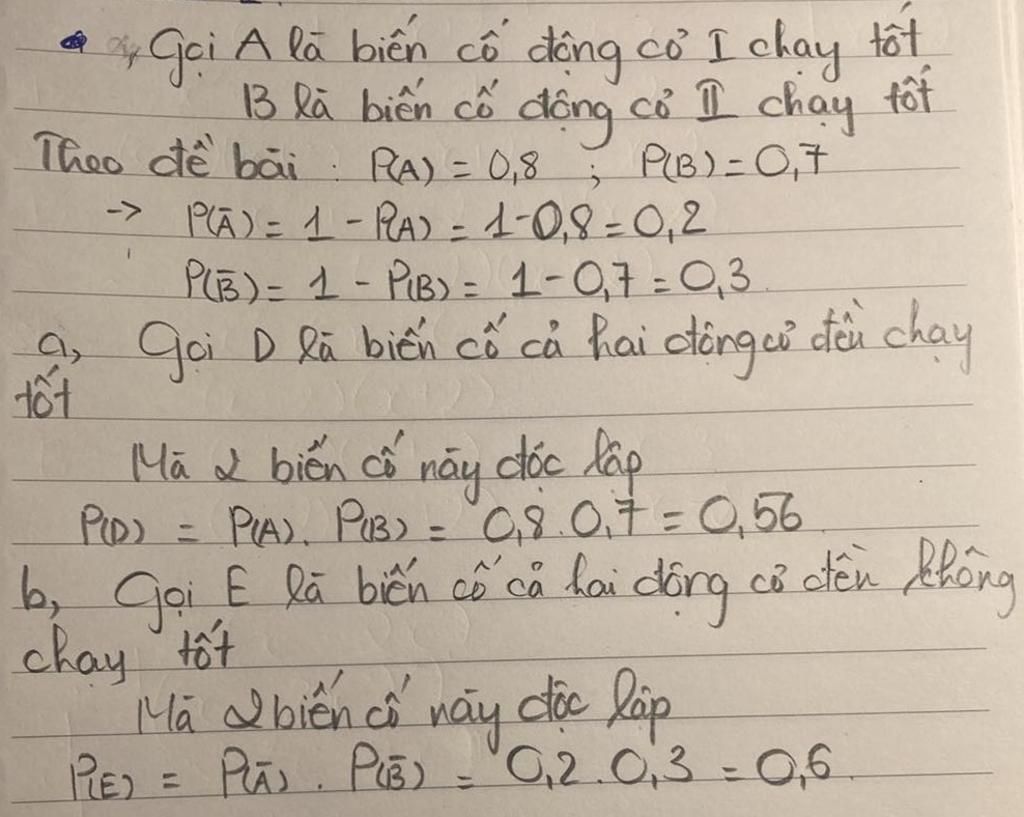 Gọi A là biến cố động cơ I chạy tốt
B là biến cố động cơ II chạy tốt
Theo đề bài : P(A) = 0,8 ; P(B) = 0,7
-> P(Ā) = 1 - P(A) = 1-0,8 = 0,2
P(B̄) = 1 - P(B) = 1 - 0,7 = 0,3
a, Gọi D là biến cố cả hai động cơ đều chạy
tốt
Mà 2 biến cố này độc lập
P(D) = P(A). P(B) = 0,8.0,7 = 0,56
b, Gọi E là biến cố cả hai động cơ đều không
chạy tốt
Mà 2 biến cố này độc lập
P(E) = P(Ā). P(B̄) = 0,2.0,3 = 0,6.